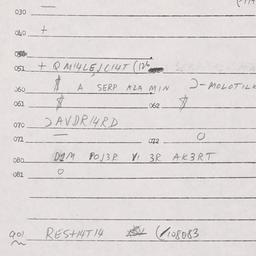 030 —
040 +
051 + QM14LE/C14T (
060 $ A SERP AZA MIN J-MOLOTILK
061 $ 062 $
070 JAVDR14RD
071 — 072 O
080 POJ3R VI 3R AK3RT
081 O
901 REST14T14 (108083